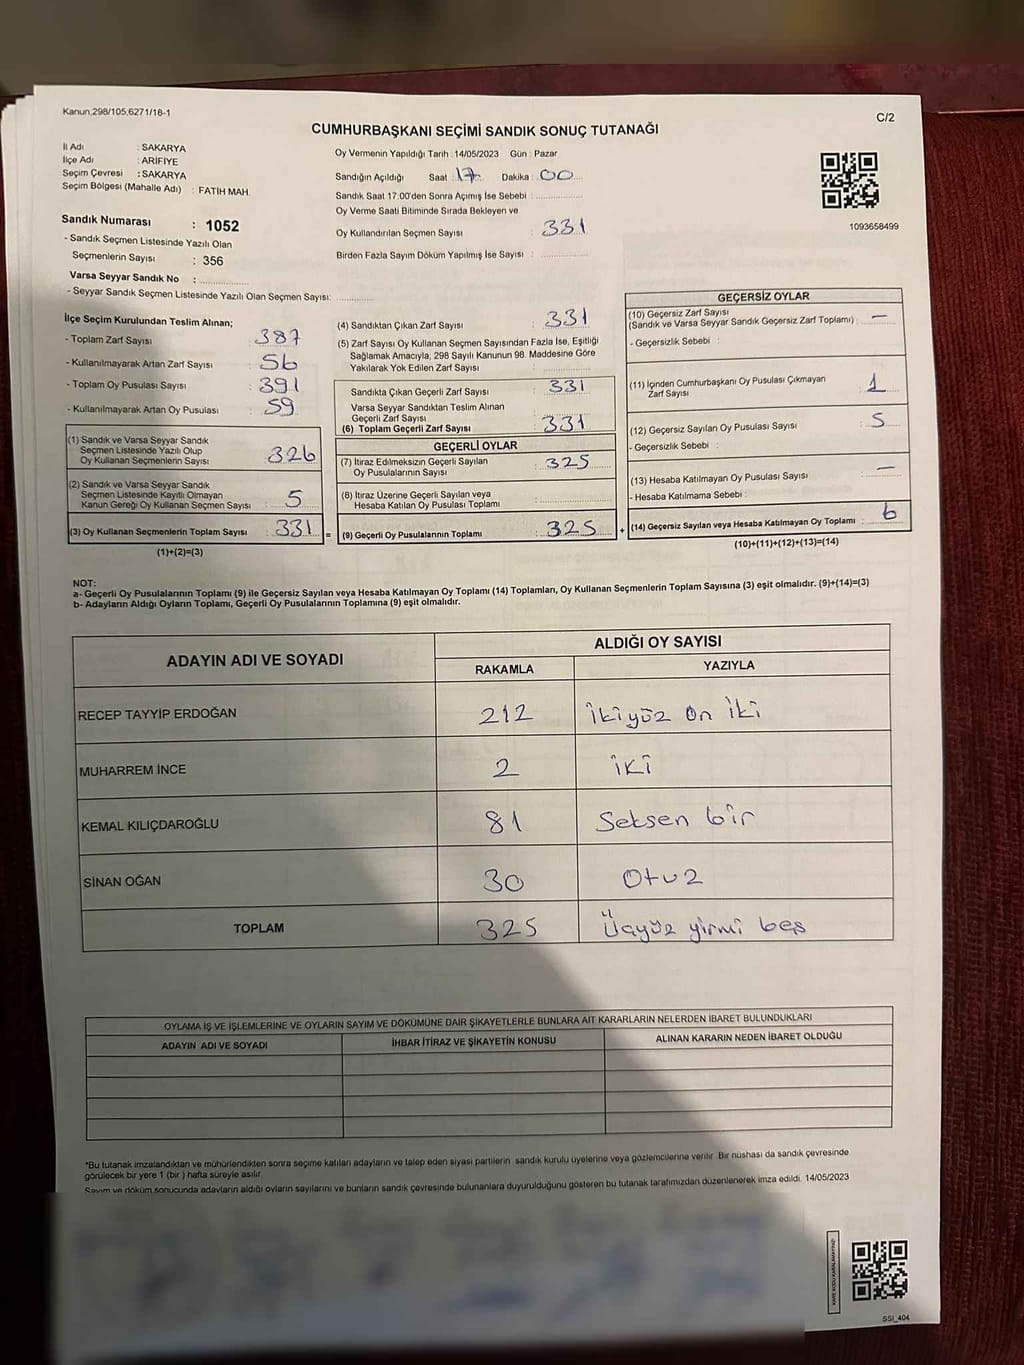 Kanun;298/105,6271/18-1
C/2
CUMHURBAŞKANI SEÇİMİ SANDIK SONUÇ TUTANAĞI
İl Adı : SAKARYA
İlçe Adı : ARİFİYE
Seçim Çevresi : SAKARYA
Seçim Bölgesi (Mahalle Adı) : FATİH MAH.
Sandık Numarası : 1052
- Sandık Seçmen Listesinde Yazılı Olan
Seçmenlerin Sayısı : 356
Varsa Seyyar Sandık No :
- Seyyar Sandık Seçmen Listesinde Yazılı Olan Seçmen Sayısı:
Oy Vermenin Yapıldığı Tarih : 14/05/2023 Gün : Pazar
Sandığın Açıldığı Saat : 17 Dakika : 00
Sandık Saat 17.00'den Sonra Açımış İse Sebebi :
Oy Verme Saati Bitiminde Sırada Bekleyen ve
Oy Kullandırılan Seçmen Sayısı : 331
Birden Fazla Sayım Döküm Yapılmış İse Sayısı :
1093658499
İlçe Seçim Kurulundan Teslim Alınan;
- Toplam Zarf Sayısı : 387
- Kullanılmayarak Artan Zarf Sayısı : 56
- Toplam Oy Pusulası Sayısı : 391
- Kullanılmayarak Artan Oy Pusulası : 59
(1) Sandık ve Varsa Seyyar Sandık
Seçmen Listesinde Yazılı Olup
Oy Kullanan Seçmenlerin Sayısı : 326
(2) Sandık ve Varsa Seyyar Sandık
Seçmen Listesinde Kayıtlı Olmayan
Kanun Gereği Oy Kullanan Seçmen Sayısı : 5
(3) Oy Kullanan Seçmenlerin Toplam Sayısı : 331
(1)+(2)=(3)
(4) Sandıktan Çıkan Zarf Sayısı : 331
(5) Zarf Sayısı Oy Kullanan Seçmen Sayısından Fazla İse, Eşitliği
Sağlamak Amacıyla, 298 Sayılı Kanunun 98. Maddesine Göre
Yakılarak Yok Edilen Zarf Sayısı :
Sandıkta Çıkan Geçerli Zarf Sayısı : 331
Varsa Seyyar Sandıktan Teslim Alınan
Geçerli Zarf Sayısı :
(6) Toplam Geçerli Zarf Sayısı : 331
GEÇERLİ OYLAR
(7) İtiraz Edilmeksizin Geçerli Sayılan
Oy Pusulalarının Sayısı : 325
(8) İtiraz Üzerine Geçerli Sayılan veya
Hesaba Katılan Oy Pusulası Toplamı :
= (9) Geçerli Oy Pusulalarının Toplamı : 325 +
GEÇERSİZ OYLAR
(10) Geçersiz Zarf Sayısı
(Sandık ve Varsa Seyyar Sandık Geçersiz Zarf Toplamı) : —
- Geçersizlik Sebebi :
(11) İçinden Cumhurbaşkanı Oy Pusulası Çıkmayan
Zarf Sayısı : 1
(12) Geçersiz Sayılan Oy Pusulası Sayısı : 5
- Geçersizlik Sebebi :
(13) Hesaba Katılmayan Oy Pusulası Sayısı : —
- Hesaba Katılmama Sebebi :
(14) Geçersiz Sayılan veya Hesaba Katılmayan Oy Toplamı : 6
(10)+(11)+(12)+(13)=(14)
NOT:
a- Geçerli Oy Pusulalarının Toplamı (9) ile Geçersiz Sayılan veya Hesaba Katılmayan Oy Toplamı (14) Toplamları, Oy Kullanan Seçmenlerin Toplam Sayısına (3) eşit olmalıdır. (9)+(14)=(3)
b- Adayların Aldığı Oyların Toplamı, Geçerli Oy Pusulalarının Toplamına (9) eşit olmalıdır.
ADAYIN ADI VE SOYADI ALDIĞI OY SAYISI
RAKAMLA YAZIYLA
RECEP TAYYİP ERDOĞAN 212 İkiyüz on iki
MUHARREM İNCE 2 iki
KEMAL KILIÇDAROĞLU 81 Seksen bir
SİNAN OĞAN 30 Otuz
TOPLAM 325 Üçyüz yirmi beş
OYLAMA İŞ VE İŞLEMLERİNE VE OYLARIN SAYIM VE DÖKÜMÜNE DAİR ŞİKAYETLERLE BUNLARA AİT KARARLARIN NELERDEN İBARET BULUNDUKLARI
ADAYIN ADI VE SOYADI İHBAR İTİRAZ VE ŞİKAYETİN KONUSU ALINAN KARARIN NEDEN İBARET OLDUĞU
*Bu tutanak imzalandıktan ve mühürlendikten sonra seçime katılan adayların ve talep eden siyasi partilerin sandık kurulu üyelerine veya gözlemcilerine verilir. Bir nüshası da sandık çevresinde
görülecek bir yere 1 (bir) hafta süreyle asılır.
Sayım ve döküm sonucunda adayların aldığı oyların sayılarını ve bunların sandık çevresinde bulunanlara duyurulduğunu gösteren bu tutanak tarafımızdan düzenlenerek imza edildi. 14/05/2023
KARE KODU KARALAMAYINIZ!
SSI_404